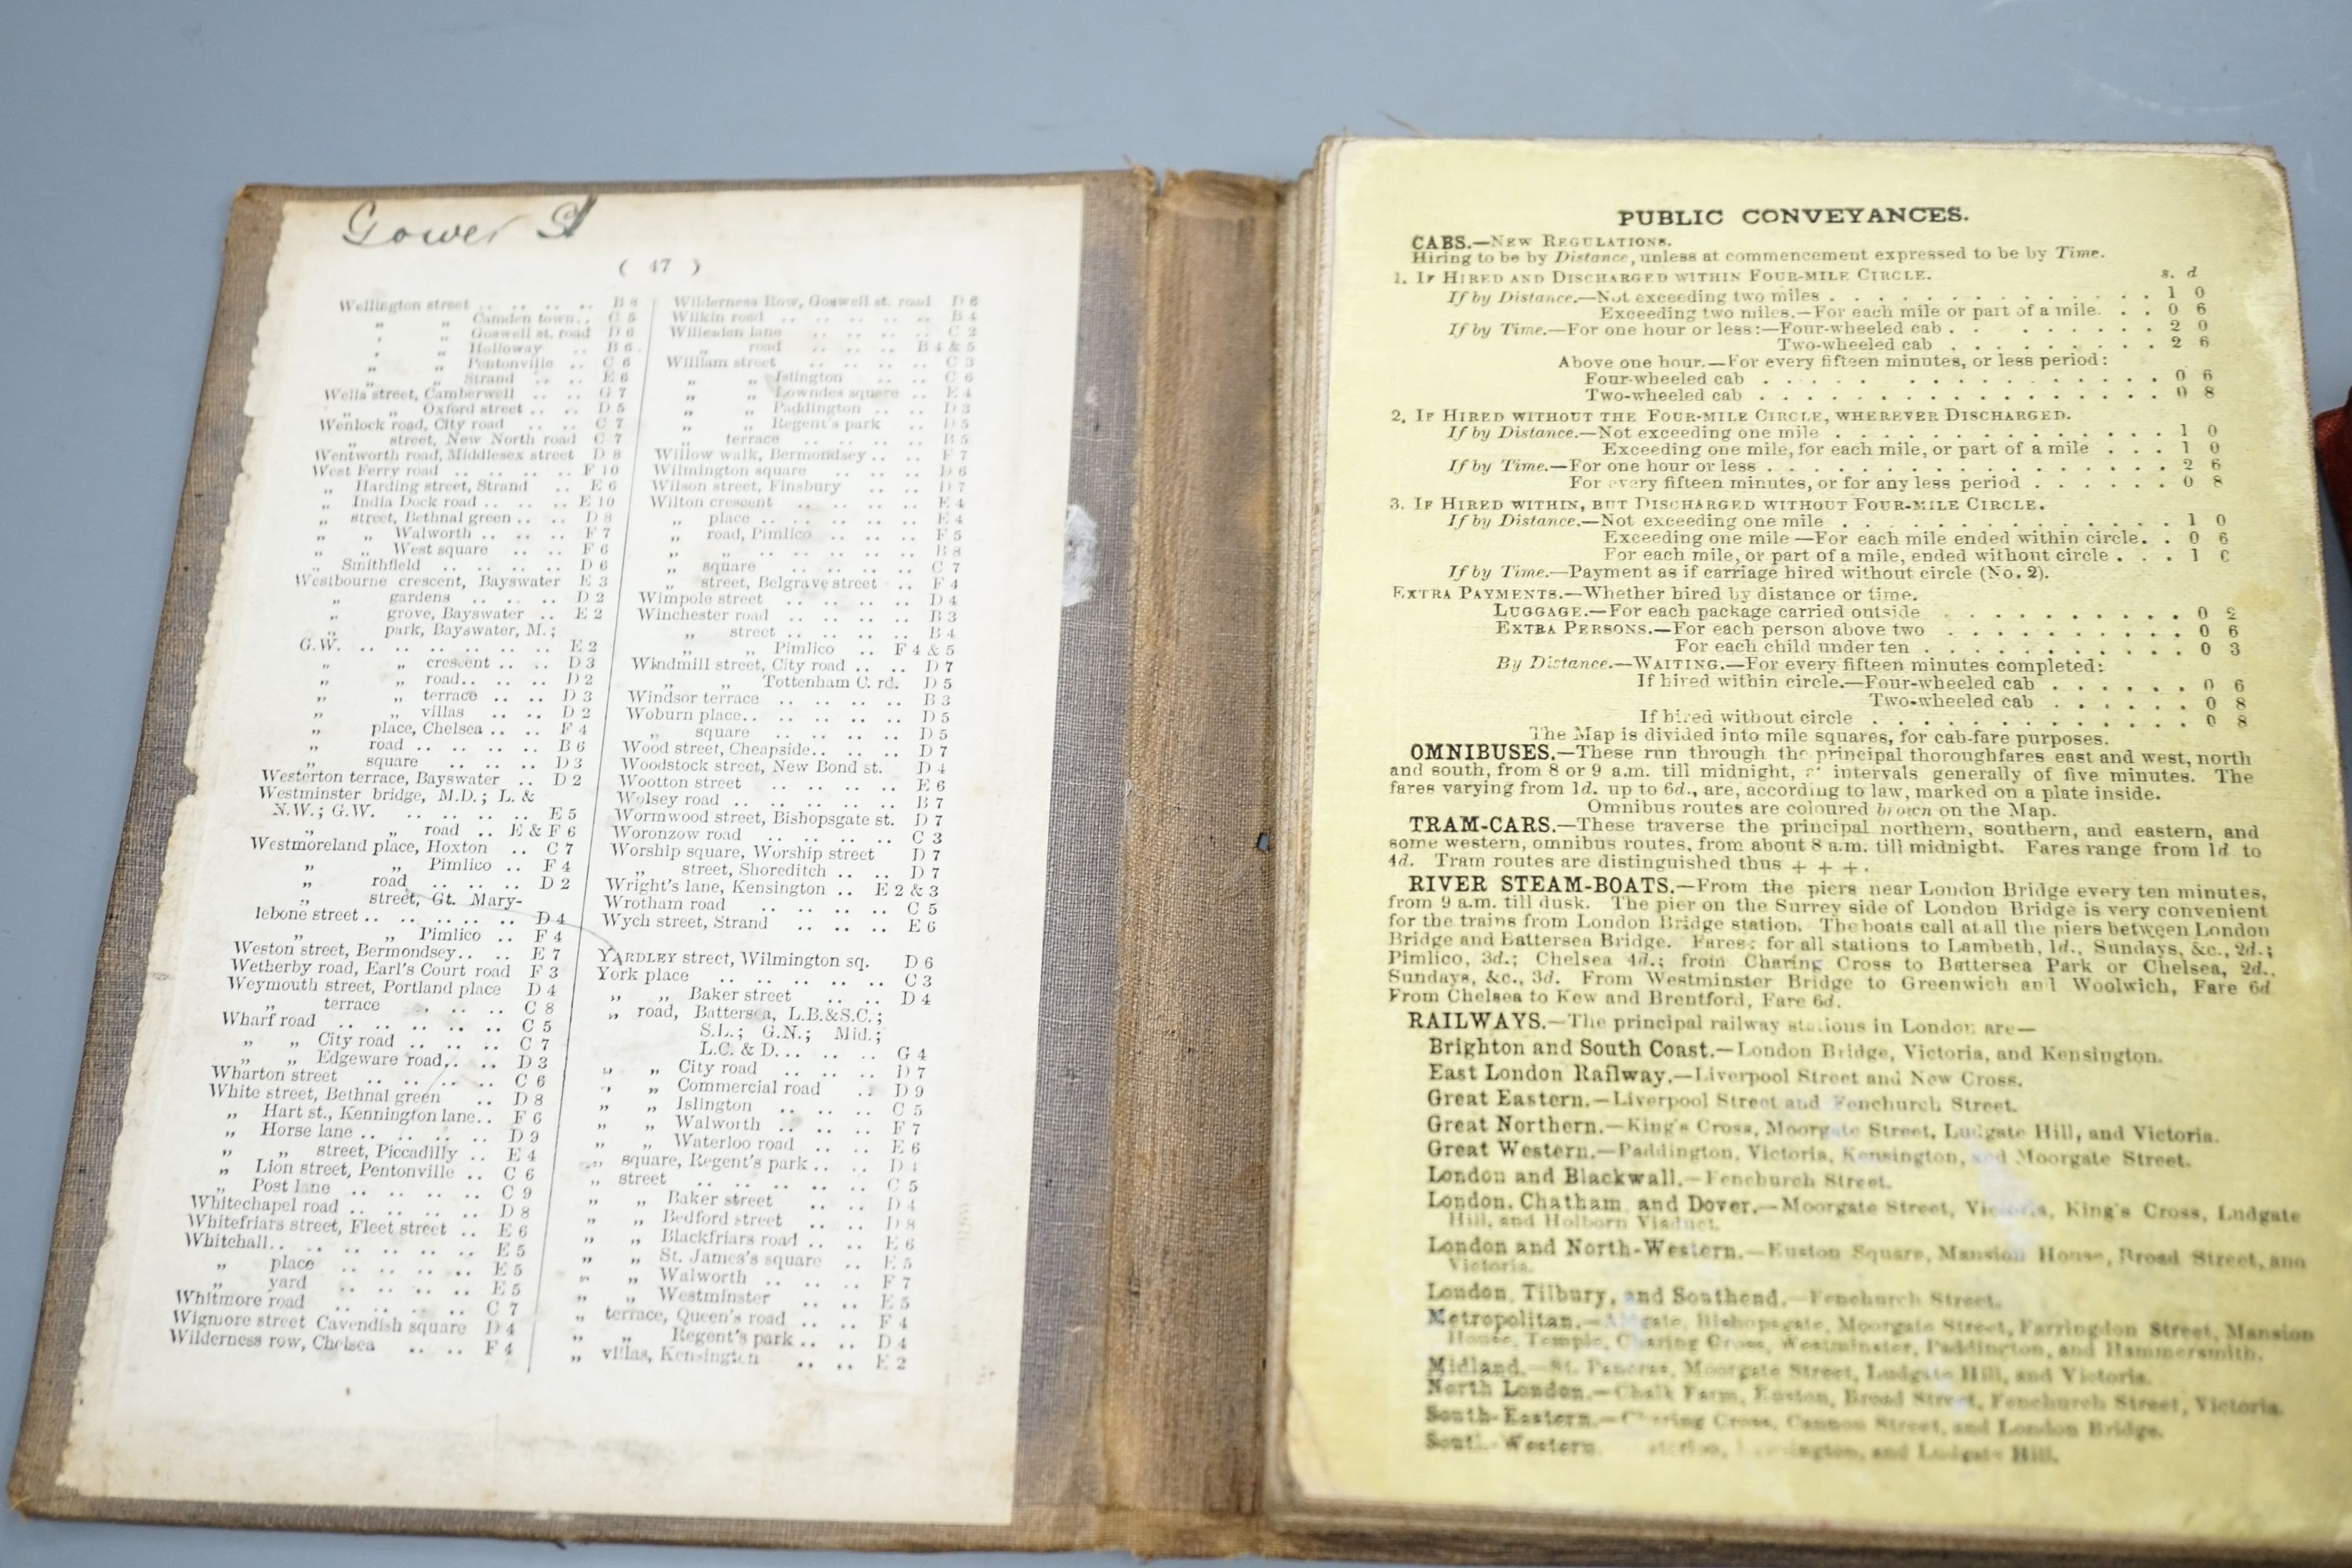 Gower St
( 47 )
Wellington street .. .. .. .. B 8
„ „ Camden town .. C 5
„ „ Goswell st. road D 6
„ „ Holloway .. B 6
„ „ Pentonville .. C 6
„ „ Strand .. .. E 6
Wells street, Camberwell .. .. G 7
„ „ Oxford street .. .. D 5
Wenlock road, City road .. .. C 7
„ street, New North road C 7
Wentworth road, Middlesex street D 8
West Ferry road .. .. .. .. F 10
„ Harding street, Strand .. E 6
„ India Dock road .. .. .. E 10
„ street, Bethnal green .. .. D 8
„ „ Walworth .. .. .. F 7
„ „ West square .. .. F 6
„ Smithfield .. .. .. .. D 6
Westbourne crescent, Bayswater E 3
„ gardens .. .. .. D 2
„ grove, Bayswater .. E 2
„ park, Bayswater, M.;
G.W. .. .. .. .. .. .. .. E 2
„ „ crescent .. .. D 3
„ „ road .. .. .. D 2
„ „ terrace .. .. D 3
„ „ villas .. .. D 2
„ place, Chelsea .. .. F 4
„ road .. .. .. .. B 6
„ square .. .. .. D 3
Westerton terrace, Bayswater .. D 2
Westminster bridge, M.D.; L. &
N.W.; G.W. .. .. .. .. E 5
„ „ road .. E & F 6
Westmoreland place, Hoxton .. C 7
„ „ Pimlico .. F 4
„ road .. .. .. D 2
„ street, Gt. Mary-
lebone street .. .. .. .. .. D 4
„ „ Pimlico .. F 4
Weston street, Bermondsey .. .. E 7
Wetherby road, Earl's Court road F 3
Weymouth street, Portland place D 4
„ terrace .. .. .. C 8
Wharf road .. .. .. .. .. C 5
„ „ City road .. .. .. C 7
„ „ Edgeware road .. .. D 3
Wharton street .. .. .. .. C 6
White street, Bethnal green .. D 8
„ Hart st., Kennington lane .. F 6
„ Horse lane .. .. .. .. D 9
„ „ street, Piccadilly .. E 4
„ Lion street, Pentonville .. C 6
„ Post lane .. .. .. .. C 9
Whitechapel road .. .. .. .. D 8
Whitefriars street, Fleet street .. E 6
Whitehall .. .. .. .. .. .. E 5
„ place .. .. .. .. E 5
„ yard .. .. .. .. E 5
Whitmore road .. .. .. .. C 7
Wigmore street Cavendish square D 4
Wilderness row, Chelsea .. .. F 4
Wilderness Row, Goswell st. road D 6
Wilkin road .. .. .. .. .. B 4
Willesden lane .. .. .. .. C 2
„ road .. .. .. B 4 & 5
William street .. .. .. .. C 3
„ „ Islington .. .. C 6
„ „ Lowndes square .. E 4
„ „ Paddington .. .. D 3
„ „ Regent's park .. D 5
„ terrace .. .. .. .. B 5
Willow walk, Bermondsey .. .. F 7
Wilmington square .. .. .. D 6
Wilson street, Finsbury .. .. D 7
Wilton crescent .. .. .. .. E 4
„ place .. .. .. .. .. E 4
„ road, Pimlico .. .. .. F 5
„ „ .. .. .. .. .. B 8
„ square .. .. .. .. C 7
„ street, Belgrave street .. F 4
Wimpole street .. .. .. .. D 4
Winchester road .. .. .. .. B 3
„ street .. .. .. .. B 4
„ „ Pimlico .. F 4 & 5
Windmill street, City road .. .. D 7
„ „ Tottenham C. rd. D 5
Windsor terrace .. .. .. .. B 3
Woburn place .. .. .. .. .. D 5
„ square .. .. .. .. D 5
Wood street, Cheapside .. .. .. D 7
Woodstock street, New Bond st. D 4
Wootton street .. .. .. .. E 6
Wolsey road .. .. .. .. .. B 7
Wormwood street, Bishopsgate st. D 7
Woronzow road .. .. .. .. C 3
Worship square, Worship street D 7
„ street, Shoreditch .. .. D 7
Wright's lane, Kensington .. E 2 & 3
Wrotham road .. .. .. .. C 5
Wych street, Strand .. .. .. E 6
YARDLEY street, Wilmington sq. D 6
York place .. .. .. .. .. C 3
„ „ Baker street .. .. D 4
„ road, Battersea, L.B.&S.C.;
S.L.; G.N.; Mid.;
L.C. & D. .. .. .. G 4
„ „ City road .. .. .. D 7
„ „ Commercial road .. D 9
„ „ Islington .. .. .. C 5
„ „ Walworth .. .. .. F 7
„ „ Waterloo road .. .. E 6
„ square, Regent's park .. .. D 4
„ street .. .. .. .. .. C 5
„ „ Baker street .. .. D 4
„ „ Bedford street .. .. D 8
„ „ Blackfriars road .. .. E 6
„ „ St. James's square .. E 5
„ „ Walworth .. .. .. F 7
„ „ Westminster .. .. E 5
„ terrace, Queen's road .. .. F 4
„ „ Regent's park .. .. D 4
„ villas, Kensington .. .. E 2
PUBLIC CONVEYANCES.
CABS.—NEW REGULATIONS.
Hiring to be by Distance, unless at commencement expressed to be by Time.
1. IF HIRED AND DISCHARGED WITHIN FOUR-MILE CIRCLE. s. d
If by Distance.—Not exceeding two miles . . . . . 1 0
Exceeding two miles.—For each mile or part of a mile. . . 0 6
If by Time.—For one hour or less:—Four-wheeled cab . . . . 2 0
Two-wheeled cab . . . . 2 6
Above one hour.—For every fifteen minutes, or less period:
Four-wheeled cab . . . . . 0 6
Two-wheeled cab . . . . . 0 8
2. IF HIRED WITHOUT THE FOUR-MILE CIRCLE, WHEREVER DISCHARGED.
If by Distance.—Not exceeding one mile . . . . . 1 0
Exceeding one mile, for each mile, or part of a mile . . . 1 0
If by Time.—For one hour or less . . . . . 2 6
For every fifteen minutes, or for any less period . . . . 0 8
3. IF HIRED WITHIN, BUT DISCHARGED WITHOUT FOUR-MILE CIRCLE.
If by Distance.—Not exceeding one mile . . . . . 1 0
Exceeding one mile —For each mile ended within circle. . 0 6
For each mile, or part of a mile, ended without circle . . . 1 0
If by Time.—Payment as if carriage hired without circle (No. 2).
EXTRA PAYMENTS.—Whether hired by distance or time.
LUGGAGE.—For each package carried outside . . . . 0 2
EXTRA PERSONS.—For each person above two . . . . 0 6
For each child under ten . . . . 0 3
By Distance.—WAITING.—For every fifteen minutes completed:
If hired within circle.—Four-wheeled cab . . . . 0 6
Two-wheeled cab . . . . 0 8
If hired without circle . . . . . 0 8
The Map is divided into mile squares, for cab-fare purposes.
OMNIBUSES.—These run through the principal thoroughfares east and west, north
and south, from 8 or 9 a.m. till midnight, at intervals generally of five minutes. The
fares varying from 1d. up to 6d., are, according to law, marked on a plate inside.
Omnibus routes are coloured brown on the Map.
TRAM-CARS.—These traverse the principal northern, southern, and eastern, and
some western, omnibus routes, from about 8 a.m. till midnight. Fares range from 1d to
4d. Tram routes are distinguished thus + + +.
RIVER STEAM-BOATS.—From the piers near London Bridge every ten minutes,
from 9 a.m. till dusk. The pier on the Surrey side of London Bridge is very convenient
for the trains from London Bridge station. The boats call at all the piers between London
Bridge and Battersea Bridge. Fares: for all stations to Lambeth, 1d., Sundays, &c., 2d.;
Pimlico, 3d.; Chelsea 4d.; from Charing Cross to Battersea Park or Chelsea, 2d.,
Sundays, &c., 3d. From Westminster Bridge to Greenwich and Woolwich, Fare 6d
From Chelsea to Kew and Brentford, Fare 6d.
RAILWAYS.—The principal railway stations in London are—
Brighton and South Coast.—London Bridge, Victoria, and Kensington.
East London Railway.—Liverpool Street and New Cross.
Great Eastern.—Liverpool Street and Fenchurch Street.
Great Northern.—King's Cross, Moorgate Street, Ludgate Hill, and Victoria.
Great Western.—Paddington, Victoria, Kensington, and Moorgate Street.
London and Blackwall.—Fenchurch Street.
London, Chatham and Dover.—Moorgate Street, Victoria, King's Cross, Ludgate
Hill, and Holborn Viaduct.
London and North-Western.—Euston Square, Mansion House, Broad Street, and
Victoria.
London, Tilbury, and Southend.—Fenchurch Street.
Metropolitan.—Aldgate, Bishopsgate, Moorgate Street, Farringdon Street, Mansion
House, Temple, Charing Cross, Westminster, Paddington, and Hammersmith.
Midland.—St. Pancras, Moorgate Street, Ludgate Hill, and Victoria.
North London.—Chalk Farm, Euston, Broad Street, Fenchurch Street, Victoria.
South-Eastern.—Charing Cross, Cannon Street, and London Bridge.
South-Western and Ludgate Hill.